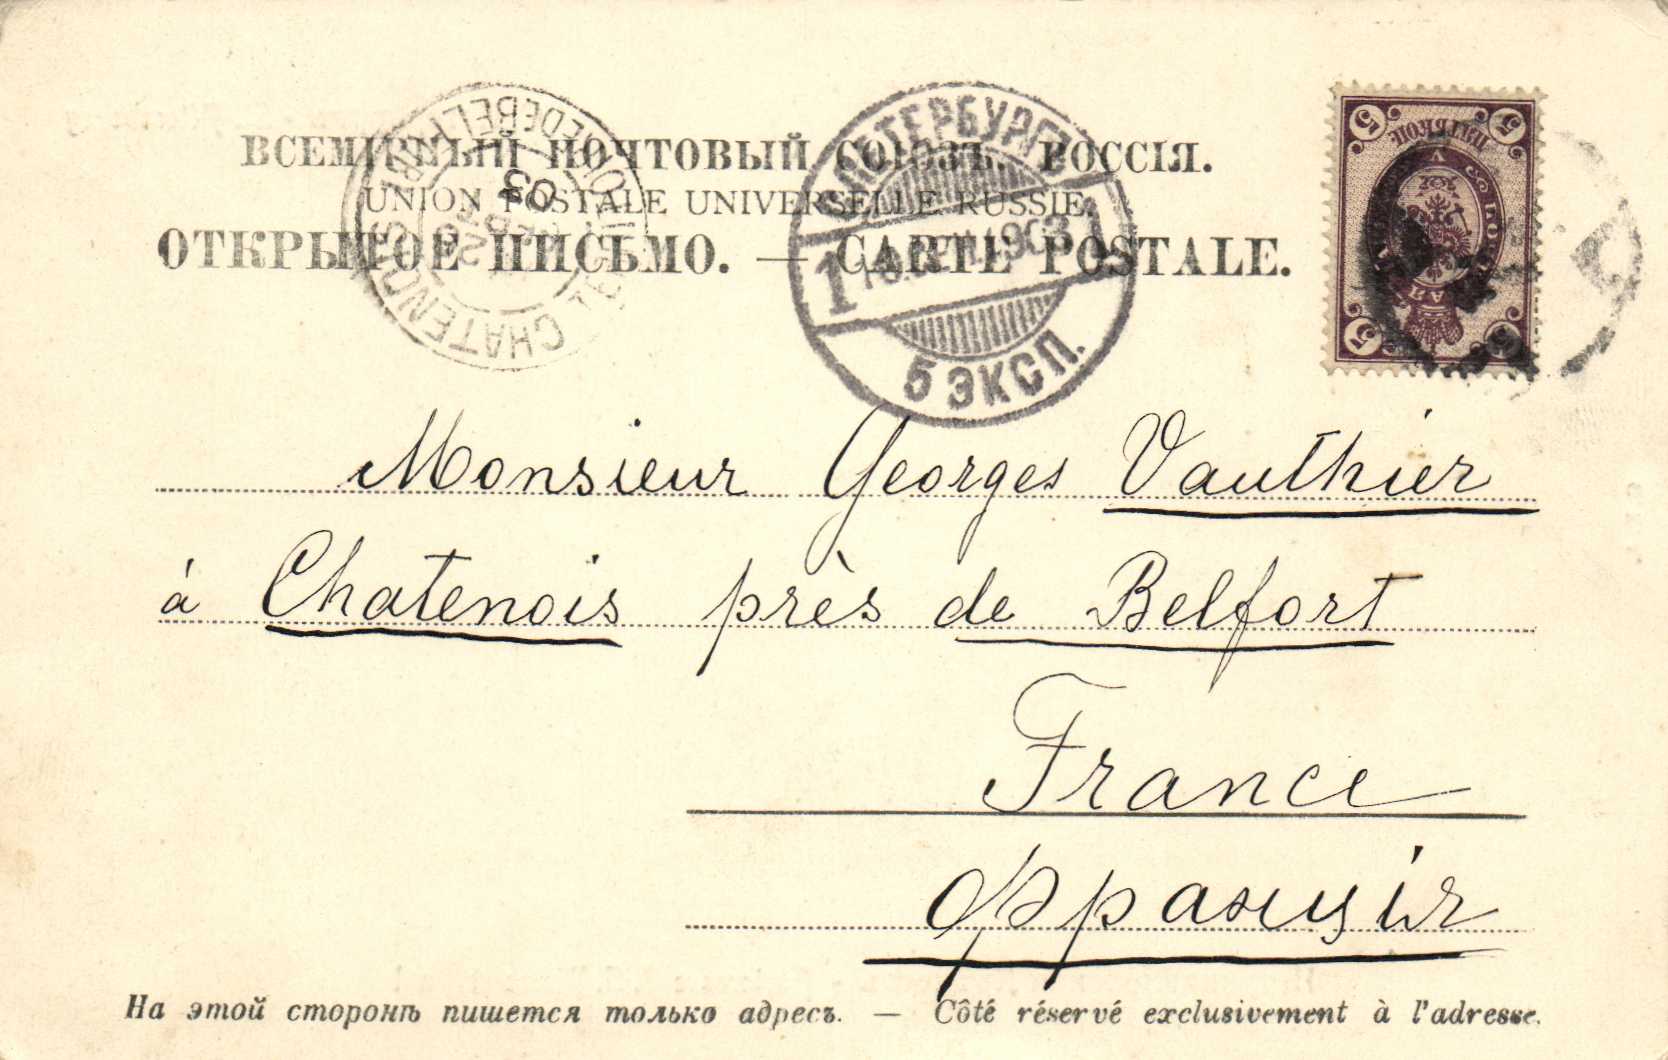 ВСЕМІРНЫЙ ПОЧТОВЫЙ СОЮЗЪ. РОССІЯ.
UNION POSTALE UNIVERSELLE. RUSSIE.
ОТКРЫТОЕ ПИСЬМО. — CARTE POSTALE.
CHATENOIS
03
С.ПЕТЕРБУРГЪ
1 1903 1
5 ЭКСП.
5 5
ПЯТЬ КОП
5 5
Monsieur Georges Vauthier
à Chatenois près de Belfort
France
Франція
На этой сторонѣ пишется только адресъ. — Côté réservé exclusivement à l'adresse.